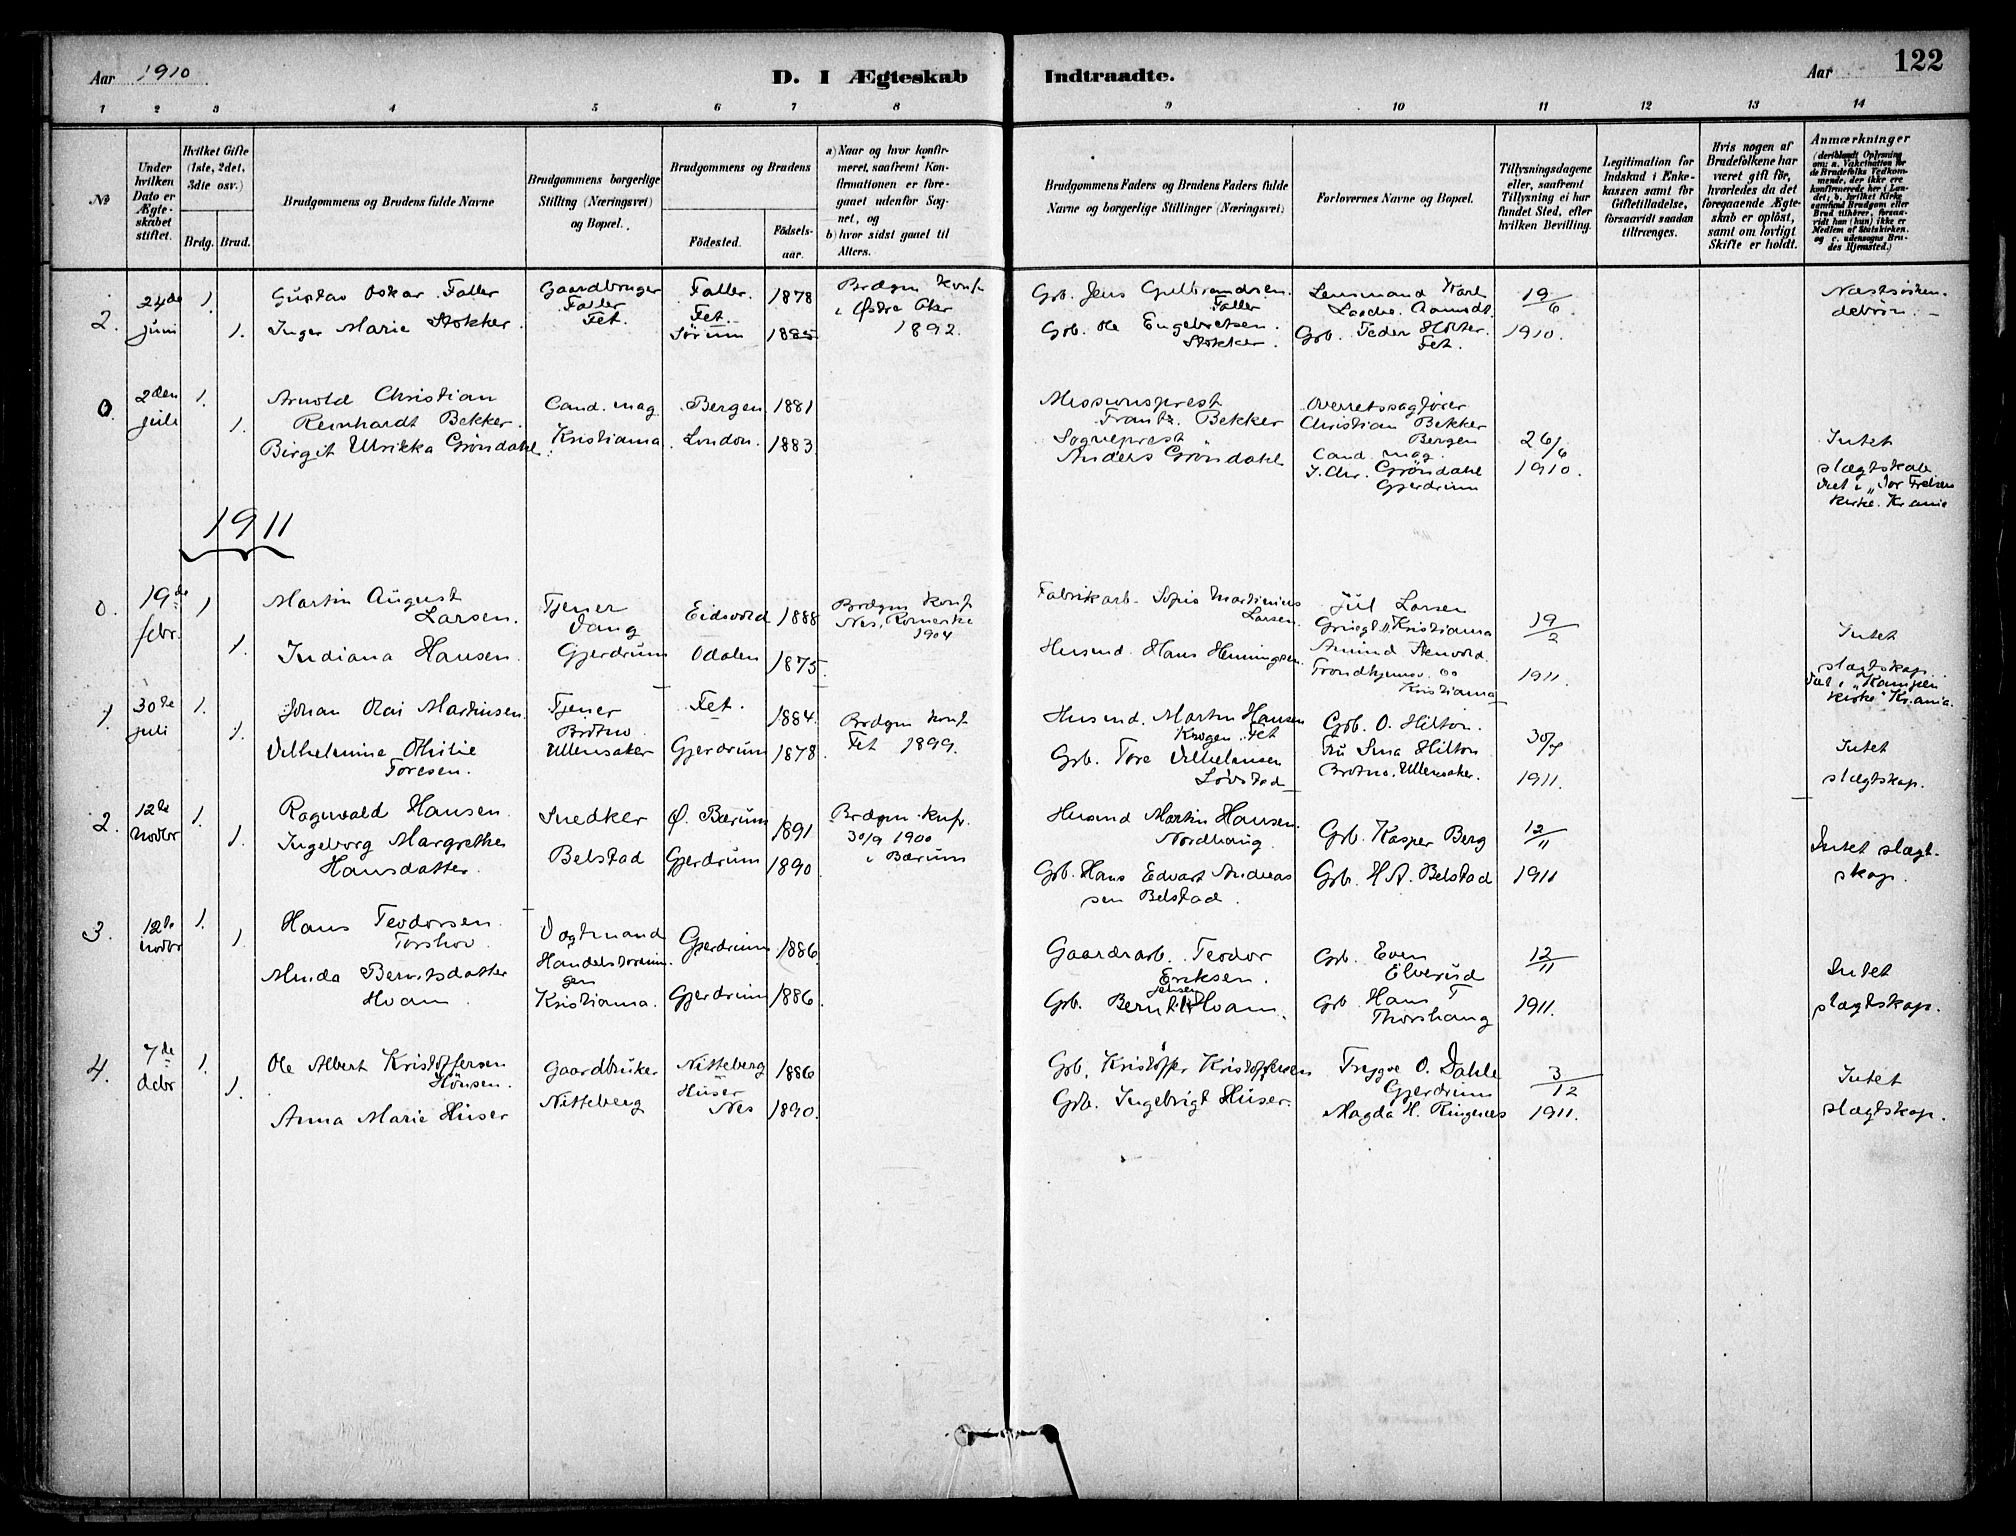 Aar 1910
D. I Ægteskab
Indtraadte.
Aar
122
1 2 3 4 5 6 7 8 9 10 11 12 13 14
No
Under hvilken Dato er Ægteskabet stiftet.
Hvilket Gifte (1ste, 2det, 3die osv.)
Brdg. Brud.
Brudgommens og Brudens fulde Navne
Brudgommens borgerlige Stilling (Næringsvei) og Bopæl.
Brudgommens og Brudens
Födested.
Födselsaar.
a) Naar og hvor konfirmeret, saafremt Konfirmationen er foregaaet udenfor Sognet, og
b) hvor sidst gaaet til Alters.
Brudgommens Faders og Brudens Faders fulde Navne og borgerlige Stillinger (Næringsvei)
Forlovernes Navne og Bopæl.
Tillysningsdagene eller, saafremt Tillysning ei har fundet Sted, efter hvilken Bevilling.
Legitimation for Indskud i Enkekassen samt for Giftetilladelse, forsaavidt saadan tiltrænges.
Hvis nogen af Brudefolkene har været gift før, hvorledes da det foregaaende Ægteskab er opløst, samt om lovligt Skifte er holdt.
Anmærkninger
(deriblandt Oplysning om: a. Vakcination for de Brudefolks Vedkommende, der ikke ere konfirmerede her i Landet; b. hvilket Kirkesamfund Brudgom eller Brud tilhører, forsaavidt han (hun) ikke er Medlem af Statskirken, og c. udensogns Brudes Hjemsted.)
2.
24de
juni
1.
1.
Gustav Oskar Faller
Inger Marie Stokker.
Gaardbruger
Faller
Fet.
Faller.
Fet.
Sørum
1878
1885
Brdgm konf
i Østre Aker
1892.
Grb. Jens Gulbrandsen.
Faller
Grb. Ole Engebretsen.
Stokker.
Lensmand Karl
Grb. Peder Holter.
Fet.
19/6
1910.
Næstsøskendebørn.
0.
2den
juli
1.
1.
Arnold Christian
Reinhardt Bekker.
Birgit Ulrikka Grøndahl.
Cand. mag
Kristiania
Bergen
London.
1881
1883
Missionsprest
Frantz Bekker
Sogneprest
Anders Grøndahl
Overretssagfører
Christian Bekker
Bergen
Cand. mag.
I. Chr. Grøndahl
Gjerdrum
26/6
1910.
Intet
slægtskab
Viet i "Vor Frelsers
kirke. Kr.ania
1911
0.
19de
febr.
1
1.
Martin August
Larsen.
Indiana Hansen.
Tjener
Vang
Gjerdrum
Eidsvold
Odalen
1888
1875
Brdgm konf
Nes, Romerike
1904
Fabrikarb. Martinius
Larsen.
Husmd. Hans Henningsen.
Jul Larsen
Kristiania
Trondhjemsv.
Kristiania
19/2
1911.
Intet
slægtskap.
Viet i "Kampen
kirke" Kr.ania.
1.
30te
juli
1.
1.
Johan Olai Martinsen.
Vilhelmine Othilie
Toresen.
Tjener
Brotno
Ullensaker
Fet.
Gjerdrum
1884.
1878
Brdgm konf
Fet 1899.
Husmd. Martin Hansen
Krogen. Fet
Grb. Tore Vilhelmsen
Løvstad
Grb. O. Hilton.
Fru Lina Hilton
Brotno, Ullensaker.
30/7
1911.
Intet
slægtskap.
2.
12te
novbr
1.
1.
Ragnvald Hansen.
Ingeborg Margrethe
Hansdatter.
Snedker
Belstad
Ø. Bærum
Gjerdrum
1891
1890
Brdgm. knf.
30/9 1900
i Bærum
Husmd Martin Hansen.
Nordhaug.
Grb. Hans Edvart Andreassen
Belstad.
Grb. Kasper Berg
Grb. H A. Belstad
12/11
1911
Intet slægtskap.
3.
12te
novbr
1.
1.
Hans Teodorsen.
Torshov.
Minda Berntsdatter
Hvam.
Vogtmand
Handelsforeningen
Kristiania.
Gjerdrum
Gjerdrum
1886
1886
Gaardarb. Teodor
Eriksen.
Grb. Bernt Jensen Hvam.
Grb. Even
Elverud
Grb Hans T
Thorshaug
12/11
1911.
Intet
slægtskap.
4.
7de
decbr
1.
1.
Ole Albert Kristoffersen
Hønsen.
Anna Marie Huser
Gaardbruker
Nitteberg
Nitteberg
Huser
Nes
1886
1890.
Grb. Kristoffer Kristoffersen
Grb. Ingebrigt Huser.
Trygve O. Dahle
Gjerdrum
Magda H. Ringenes
3/12
1911.
Intet
slægtskap.